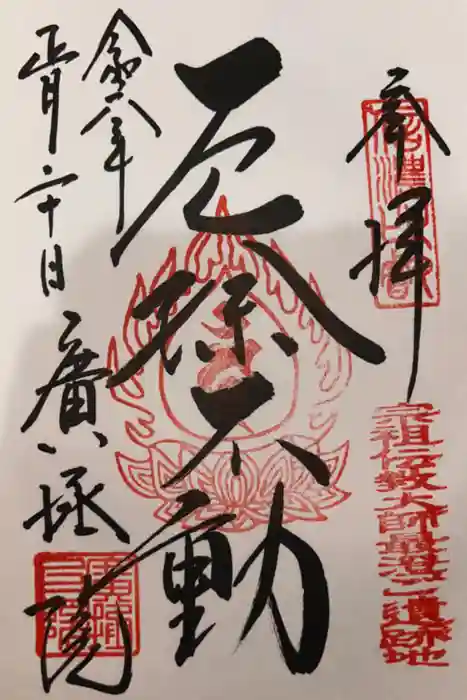 奉拝
宗祖伝教大師最澄公遺跡地
厄除不動
令和八年
正月二十日
廣拯院